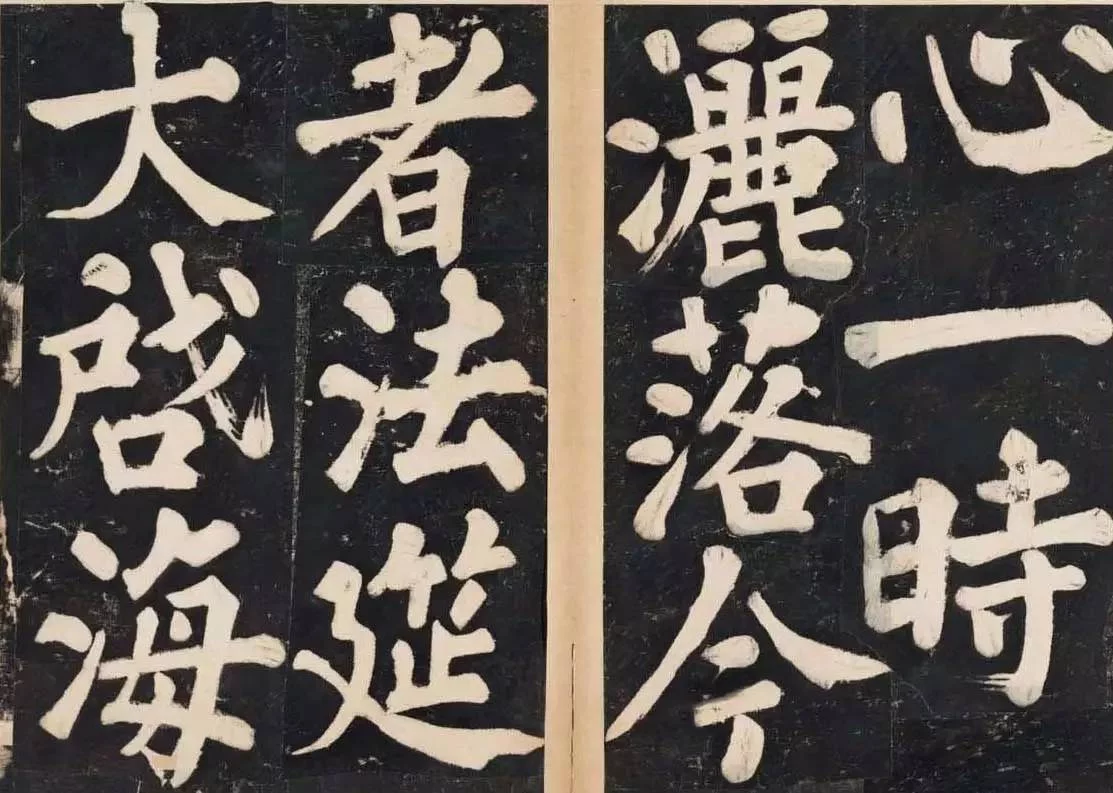 心一時
灑落今
者法筵
大啓海